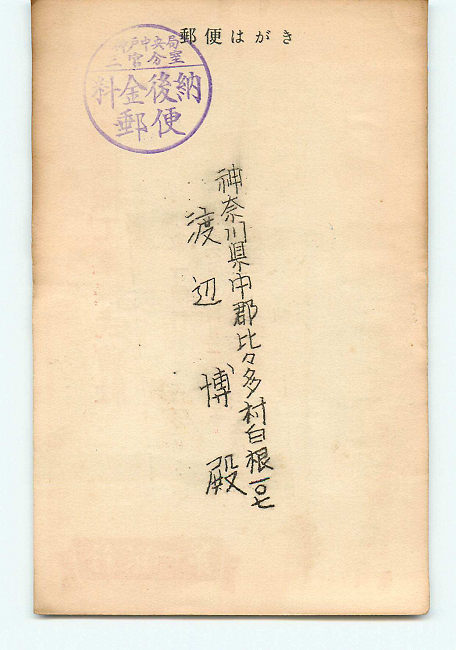 郵便はがき
神戸中央局
三宮分室
料金後納
郵便
神奈川県中郡比々多村白根一〇七
渡辺博殿